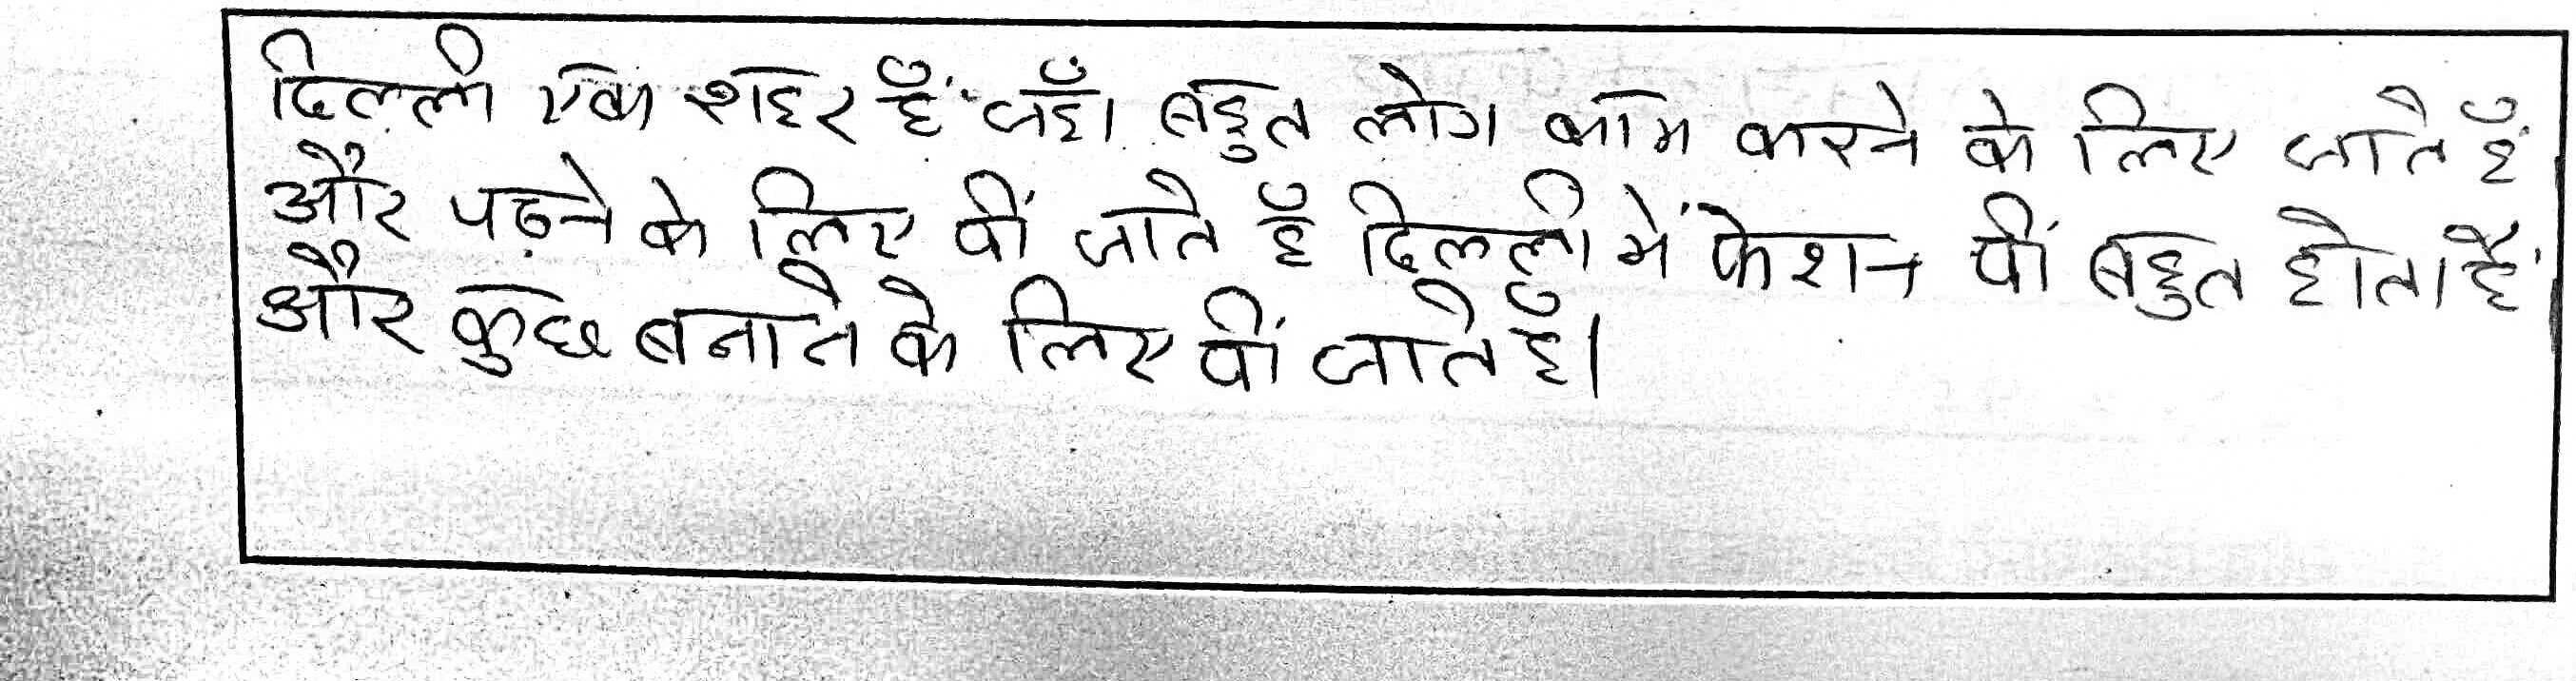 दिल्ली एक शहर हैं जहाँ बहुत लोग काम करने के लिए जाते हैं
और पढ़ने के लिए वीं जाते हैं दिल्ली में फेशन वीं बहुत होता हैं
और कुछ बनाते के लिए वीं जाते हैं।